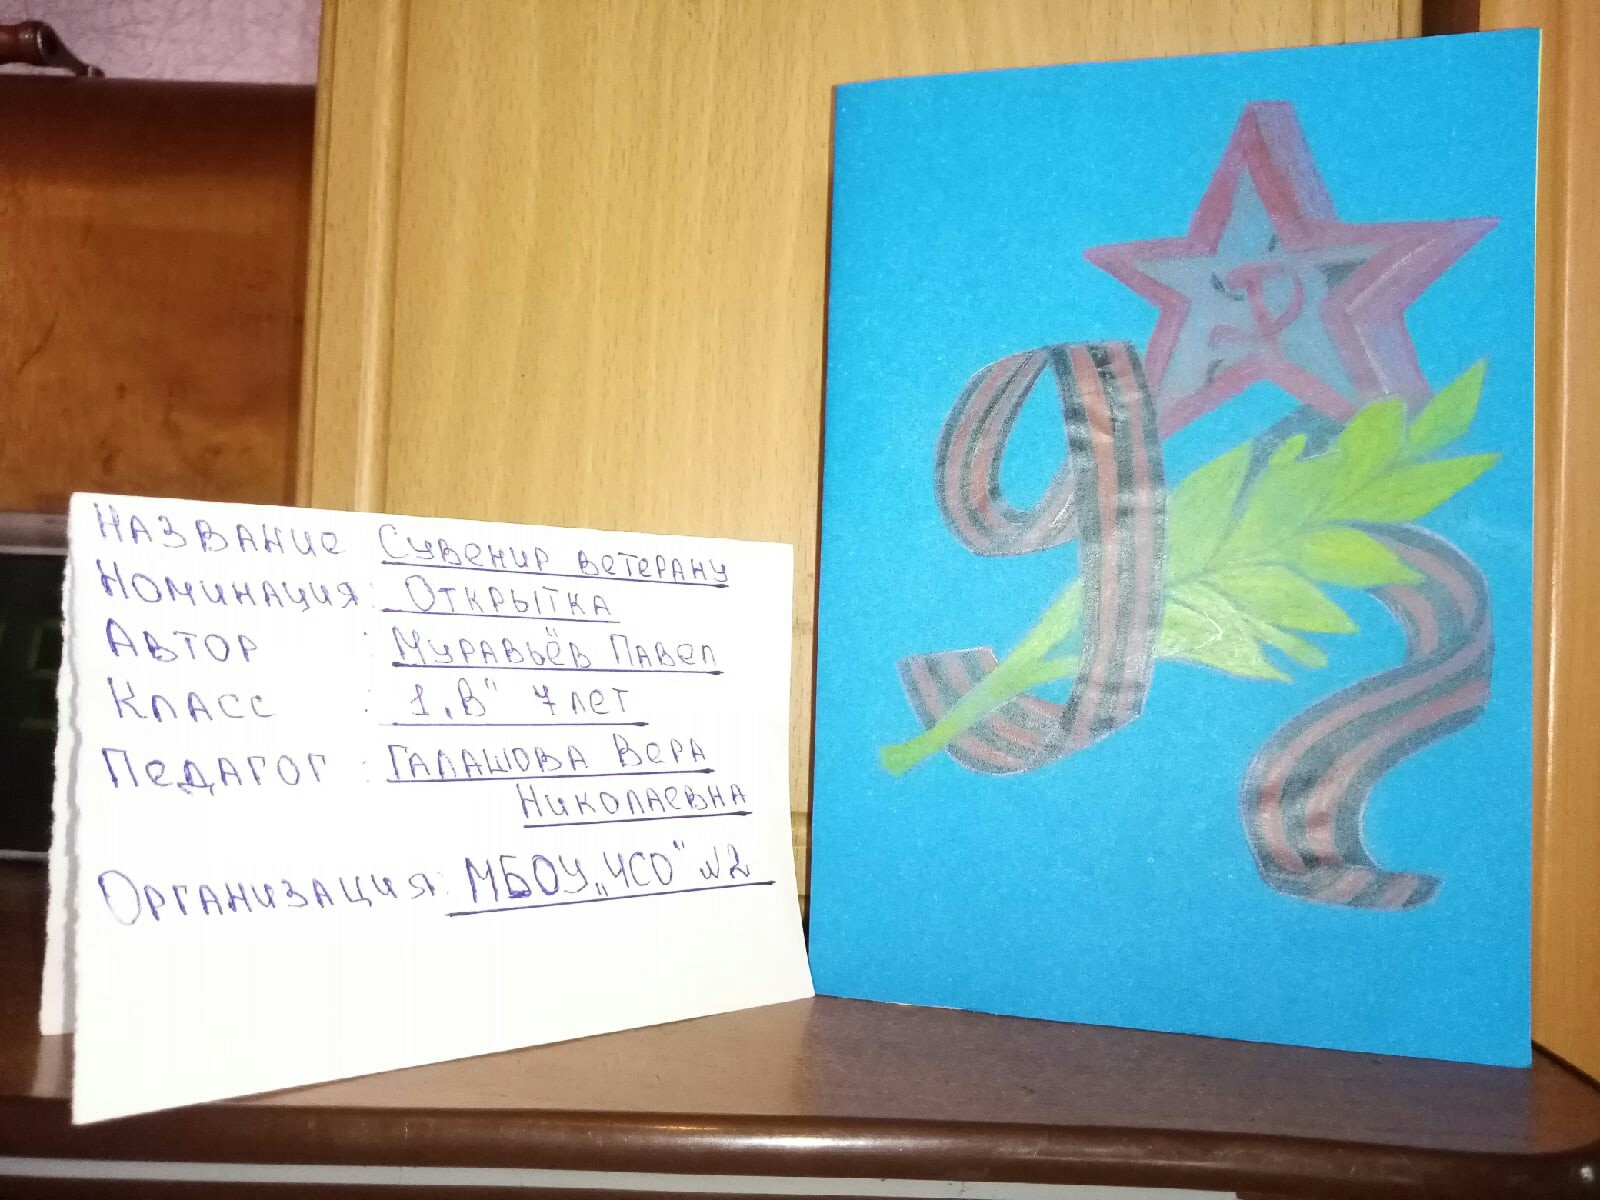 Название Сувенир ветерану
Номинация: Открытка
Автор : Муравьёв Павел
Класс : 1„В" 7 лет
Педагог : Галашова Вера
Николаевна
Организация: МБОУ „ЧСО" №2
9